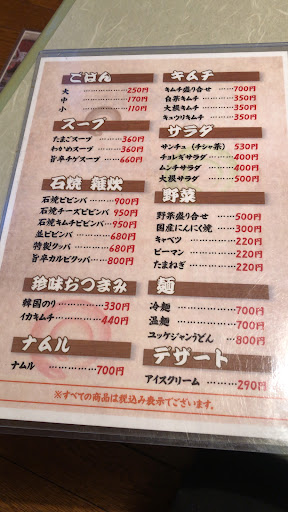 ごはん
大 ………… 250円
中 ………… 170円
小 ………… 110円
スープ
たまごスープ …… 360円
わかめスープ …… 360円
旨辛チゲスープ …… 660円
石焼 雑炊
石焼ビビンバ …… 900円
石焼チーズビビンバ 950円
石焼キムチビビンバ 950円
並ビビンバ …… 680円
特製クッパ …… 680円
旨辛カルビクッパ …… 800円
珍味おつまみ
韓国のり ……… 330円
イカキムチ ……… 440円
ナムル
ナムル ……… 700円
キムチ
キムチ盛り合せ …… 700円
白菜キムチ ……… 350円
大根キムチ ……… 350円
キュウリキムチ …… 350円
サラダ
サンチュ(チシャ菜) 530円
チョレギサラダ …… 400円
ムンチサラダ …… 400円
大根サラダ ……… 500円
野菜
野菜盛り合せ …… 500円
国産にんにく焼 …… 300円
キャベツ ……… 220円
ピーマン ……… 220円
たまねぎ ……… 220円
麺
冷麺 ………… 700円
温麺 ………… 700円
ユッケジャンうどん …… 800円
デザート
アイスクリーム …… 290円
※すべての商品は税込み表示でございます。